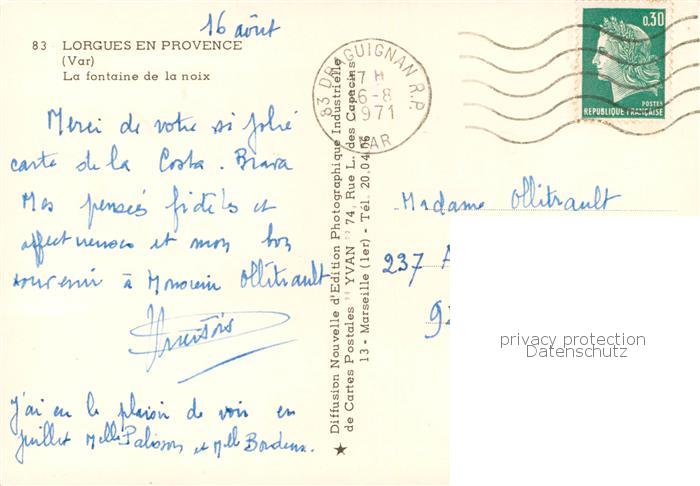 16 août
83 LORGUES EN PROVENCE
(Var)
La fontaine de la noix
Merci de votre si jolie
carte de la Costa. Brava
Mes pensées fidèles et
affectueuses et mon bon
souvenir à Monsieur Ollitrault
J'ai eu le plaisir de voir en
juillet Melle Palisson et Melle Bordeux.
Diffusion Nouvelle d'Edition Photographique Industrielle
de Cartes Postales "YVAN" 74, Rue L. des Capucins
13 - Marseille (1er) - Tél. 20.04.06
83 DRAGUIGNAN R.P.
17 H
16-8
1971
VAR
0,30
POSTES
REPUBLIQUE FRANÇAISE
Madame Ollitrault
237
92
privacy protection
Datenschutz